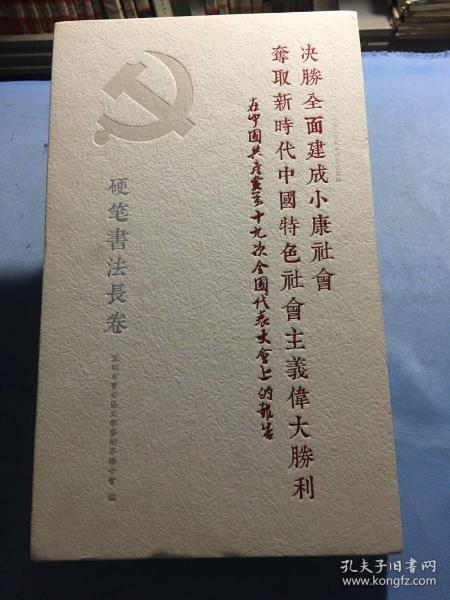 决勝全面建成小康社會
奪取新時代中國特色社會主義偉大勝利
在中國共產黨第十九次全國代表大會上的報告
硬笔書法長卷
深圳市寶安區文學藝術界聯合會 編
孔夫子旧书网
www.kongfz.com